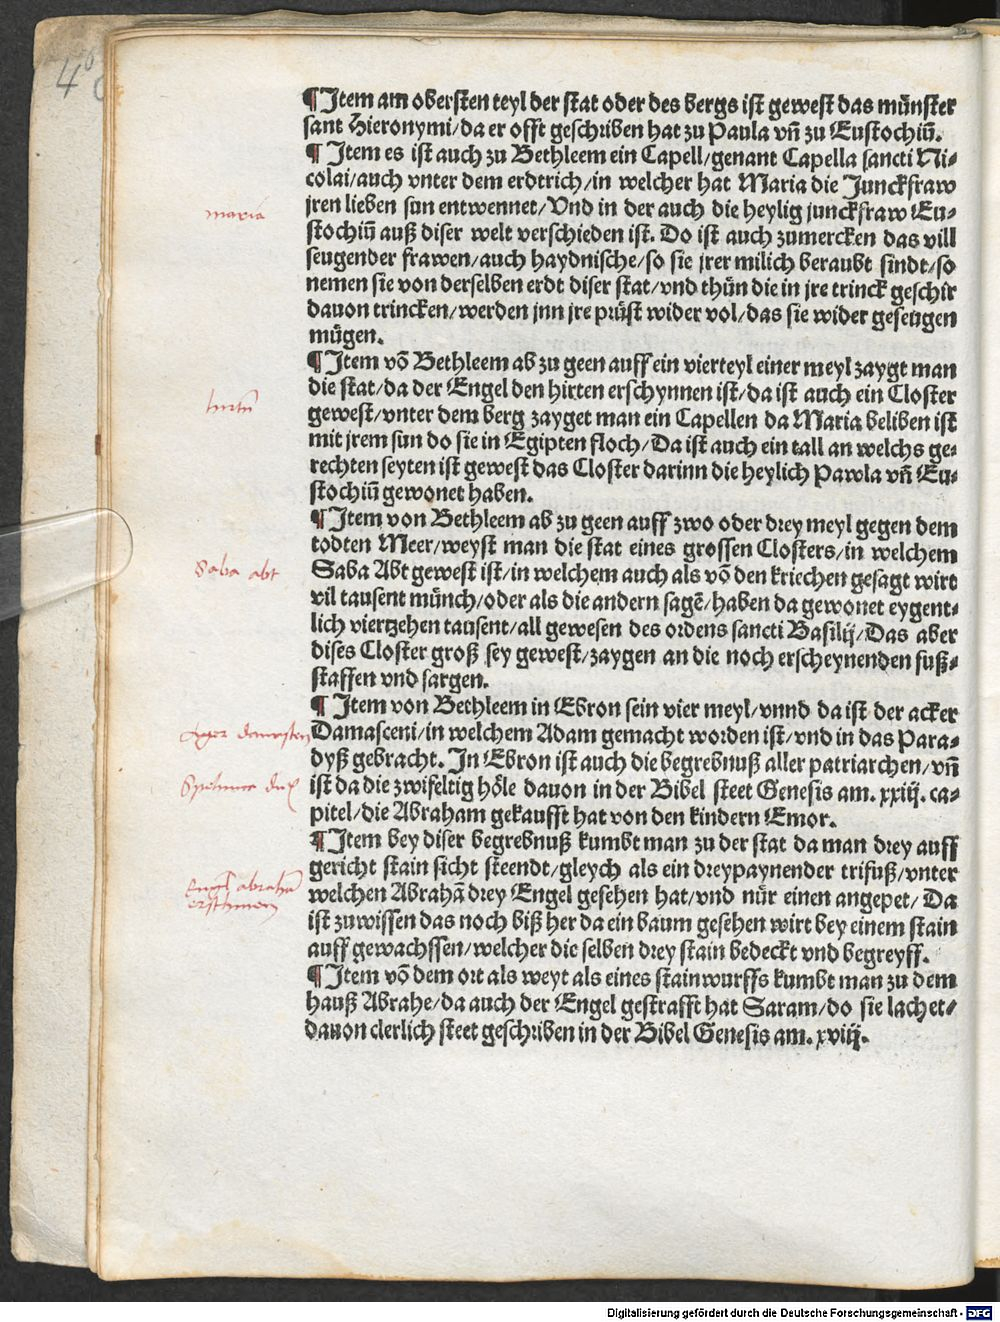 ¶ Jtem am obersten teyl der stat oder des bergs ist gewest das münster
sant Hieronymi/da er offt geschriben hat zu Paula vñ zu Eustochiũ.
¶ Jtem es ist auch zu Bethleem ein Capell/genant Capella sancti Ni⸗
colai/auch vnter dem erdtrich/in welcher hat Maria die Junckfraw
jren lieben sun entwennet/Vnd in der auch die heylig junckfraw Eu⸗
stochiũ auß diser welt verschieden ist. Do ist auch zumercken das vill
seugender frawen/auch haydnische/so sie jrer milich beraubt sindt/so
nemen sie von derselben erdt diser stat/vnd thün die in jre trinck geschir
dauon trincken/werden jnn jre prüst wider vol/das sie wider geseugen
mügen.
¶ Jtem võ Bethleem ab zu geen auff ein vierteyl einer meyl zaygt man
die stat/da der Engel den hirten erschynnen ist/da ist auch ein Closter
gewest/vnter dem berg zayget man ein Capellen da Maria beliben ist
mit jrem sun do sie in Egipten floch/Da ist auch ein tall an welchs ge⸗
rechten seyten ist gewest das Closter darinn die heylich Pawla vñ Eu⸗
stochiũ gewonet haben.
¶ Jtem von Bethleem ab zu geen auff zwo oder drey meyl gegen dem
todten Meer/weyst man die stat eines grossen Closters/in welchem
Saba Abt gewest ist/in welchem auch als võ den kriechen gesagt wirt
vil tausent münch/oder als die andern sagẽ/haben da gewonet eygent⸗
lich viertzehen tausent/all gewesen des ordens sancti Basilij/Das aber
dises Closter groß sey gewest/zaygen an die noch erscheynenden fuß⸗
staffen vnd sargen.
¶ Jtem von Bethleem in Ebron sein vier meyl/vnnd da ist der acker
Damasceni/in welchem Adam gemacht worden ist/vnd in das Para⸗
dyß gebracht. Jn Ebron ist auch die begrebnuß aller patriarchen/vñ
ist da die zwifeltig höle dauon in der Bibel steet Genesis am. xxiij. ca⸗
pitel/die Abraham gekaufft hat von den kindern Emor.
¶ Jtem bey diser begrebnuß kumbt man zu der stat da man drey auff
gericht stain sicht steendt/gleych als ein dreypaynender trifuß/vnter
welchen Abrahã drey Engel gesehen hat/vnd nür einen angepet/Da
ist zuwissen das noch biß her da ein baum gesehen wirt bey einem stain
auff gewachssen/welcher die selben drey stain bedeckt vnd begreyff.
¶ Jtem võ dem ort als weyt als eines stainwurffs kumbt man zu dem
hauß Abrahe/da auch der Engel gestrafft hat Saram/do sie lachet⸗
dauon clerlich steet geschriben in der Bibel Genesis am. xviij.
maria
hirtñ
Saba abt
Ager
Engel abrahã
40
Digitalisierung gefördert durch die Deutsche Forschungsgemeinschaft - DFG